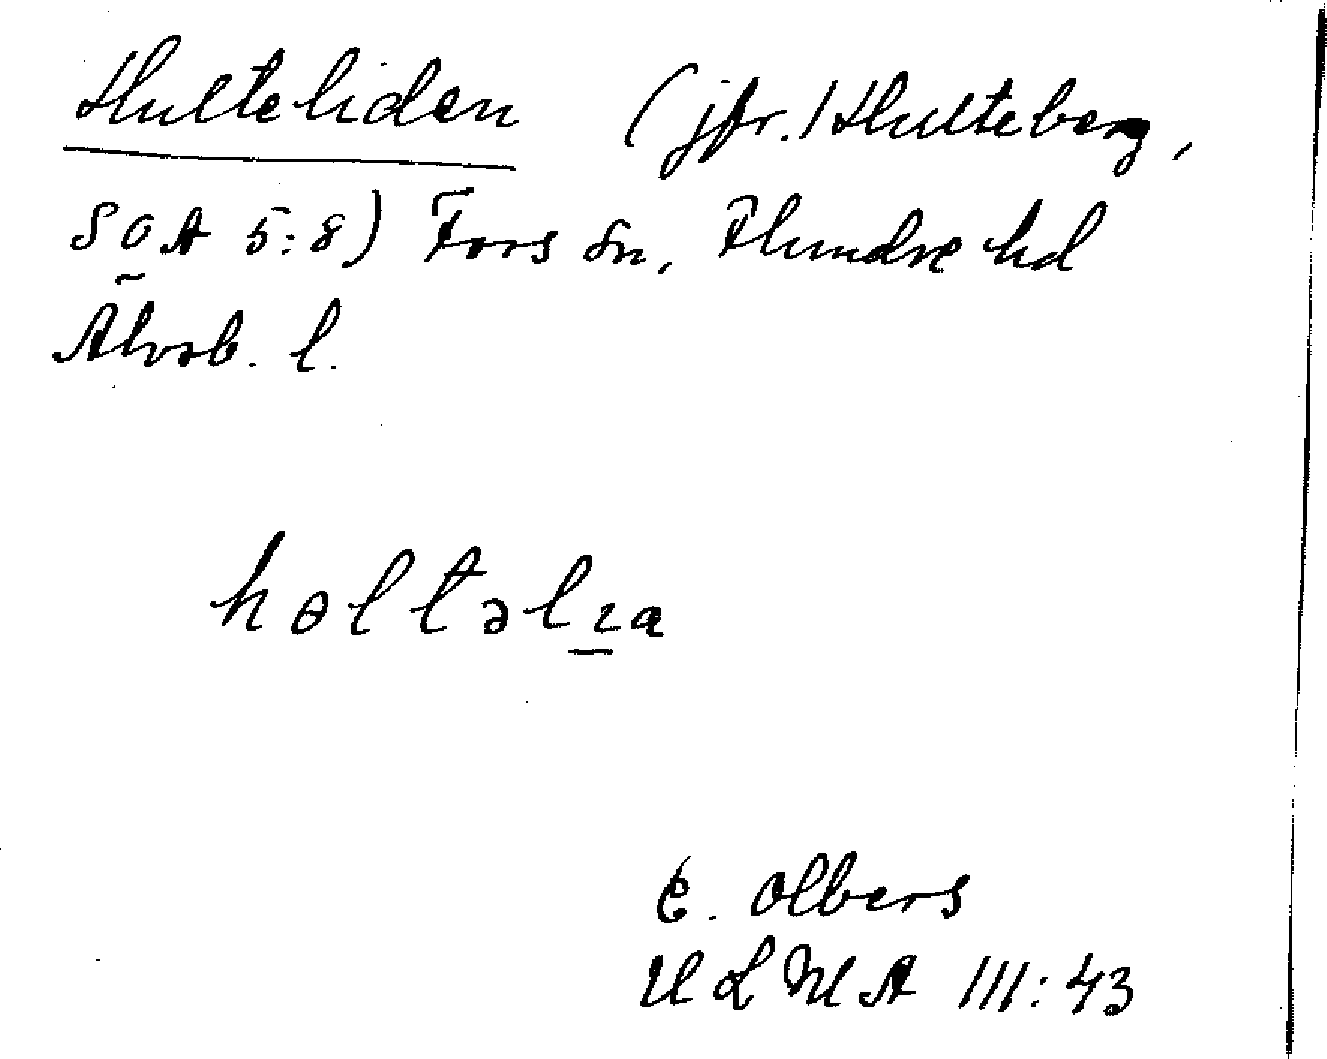 Hulteliden (jfr. Hulteberg,
SOÄ 5:8) Fors sn, Flundre hd
Älvsb. l.
høltəlıa
E. Olbers
ULMA 111:43